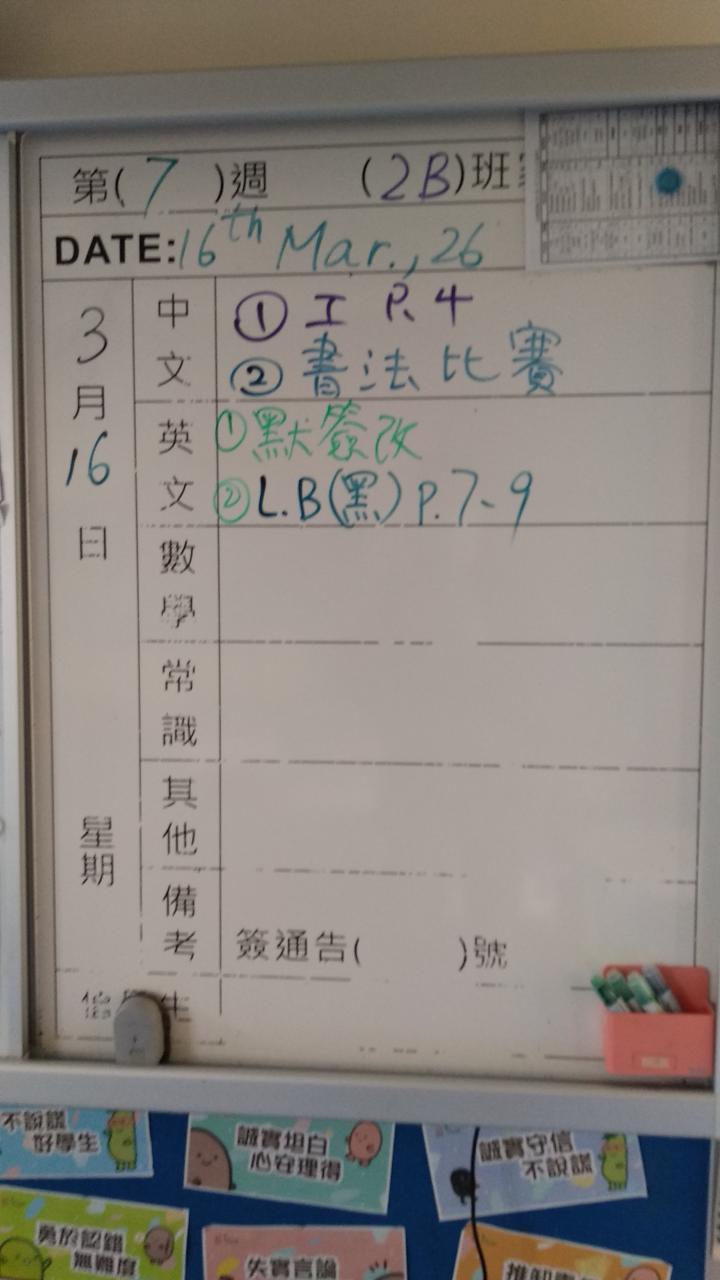 第( 7 )週 (2B)班
DATE: 16th Mar., 26
3月16日
星期
中文
① 工 P.4
② 書法比賽
英文
① 默簽改
② L.B(黑) p.7-9
數學
常識
其他
備考
簽通告( )號
生
不說謊
好學生
誠實坦白
心安理得
誠實守信
不說謊
勇於認錯
無難度
失實言論